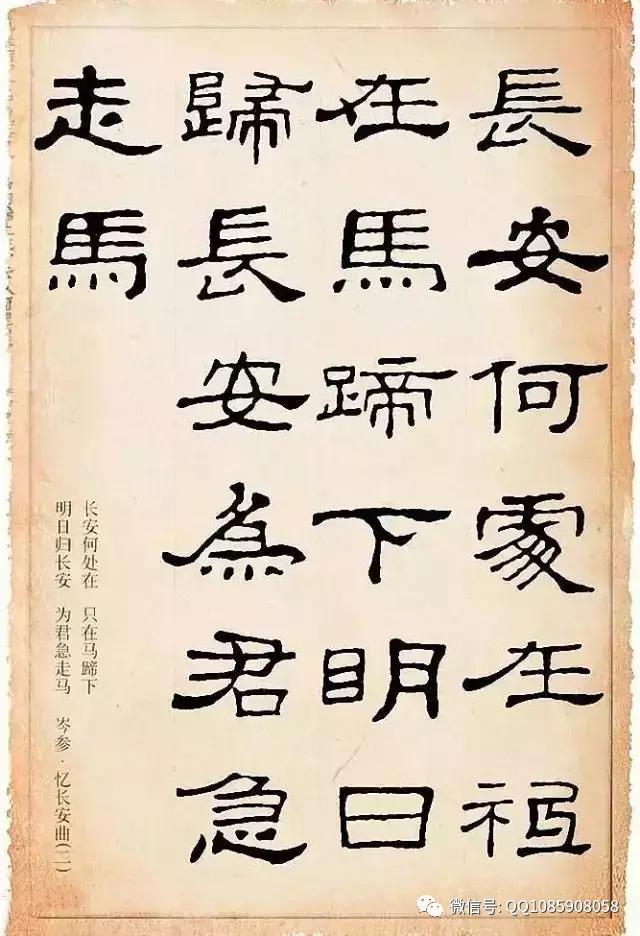 長安何處在祇
在馬蹄下明日
歸長安為君急
走馬
长安何处在 只在马蹄下
明日归长安 为君急走马 岑参·忆长安曲(二)
微信号: QQ1085908058